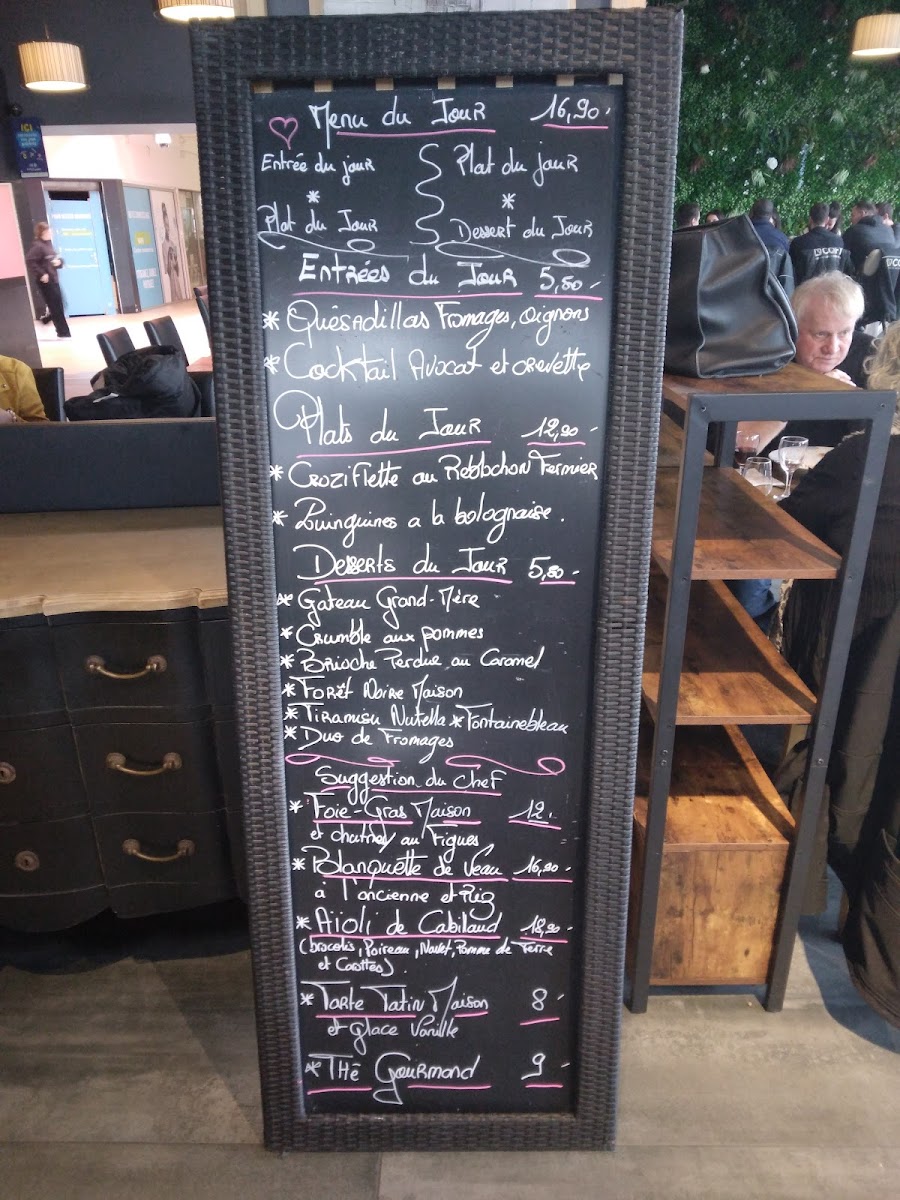 Menu du Jour 16,90
Entrée du jour
*
Plat du Jour
Plat du jour
*
Dessert du Jour
Entrées du Jour 5,50
* Quésadillas Fromages, oignons
* Cocktail Avocat et crevette
Plats du Jour 12,90
* Croziflette au Reblochon Fermier
* Linguines a la bolognaise.
Desserts du Jour 5,50
* Gateau Grand-Mère
* Crumble aux pommes
* Brioche Perdue au Caramel
* Forêt Noire Maison
* Tiramisu Nutella * Fontainebleau
* Duo de Fromages
Suggestion du Chef
* Foie-Gras Maison 12
et chutney au Figues
* Blanquette de Veau 16,90
à l'ancienne et Riz
* Aioli de Cabillaud 18,90
(brocolis, Poireau, Navet, Pomme de Terre
et Carottes)
* Tarte Tatin Maison 8
et glace Vanille
* Thé Gourmand 9
ICI